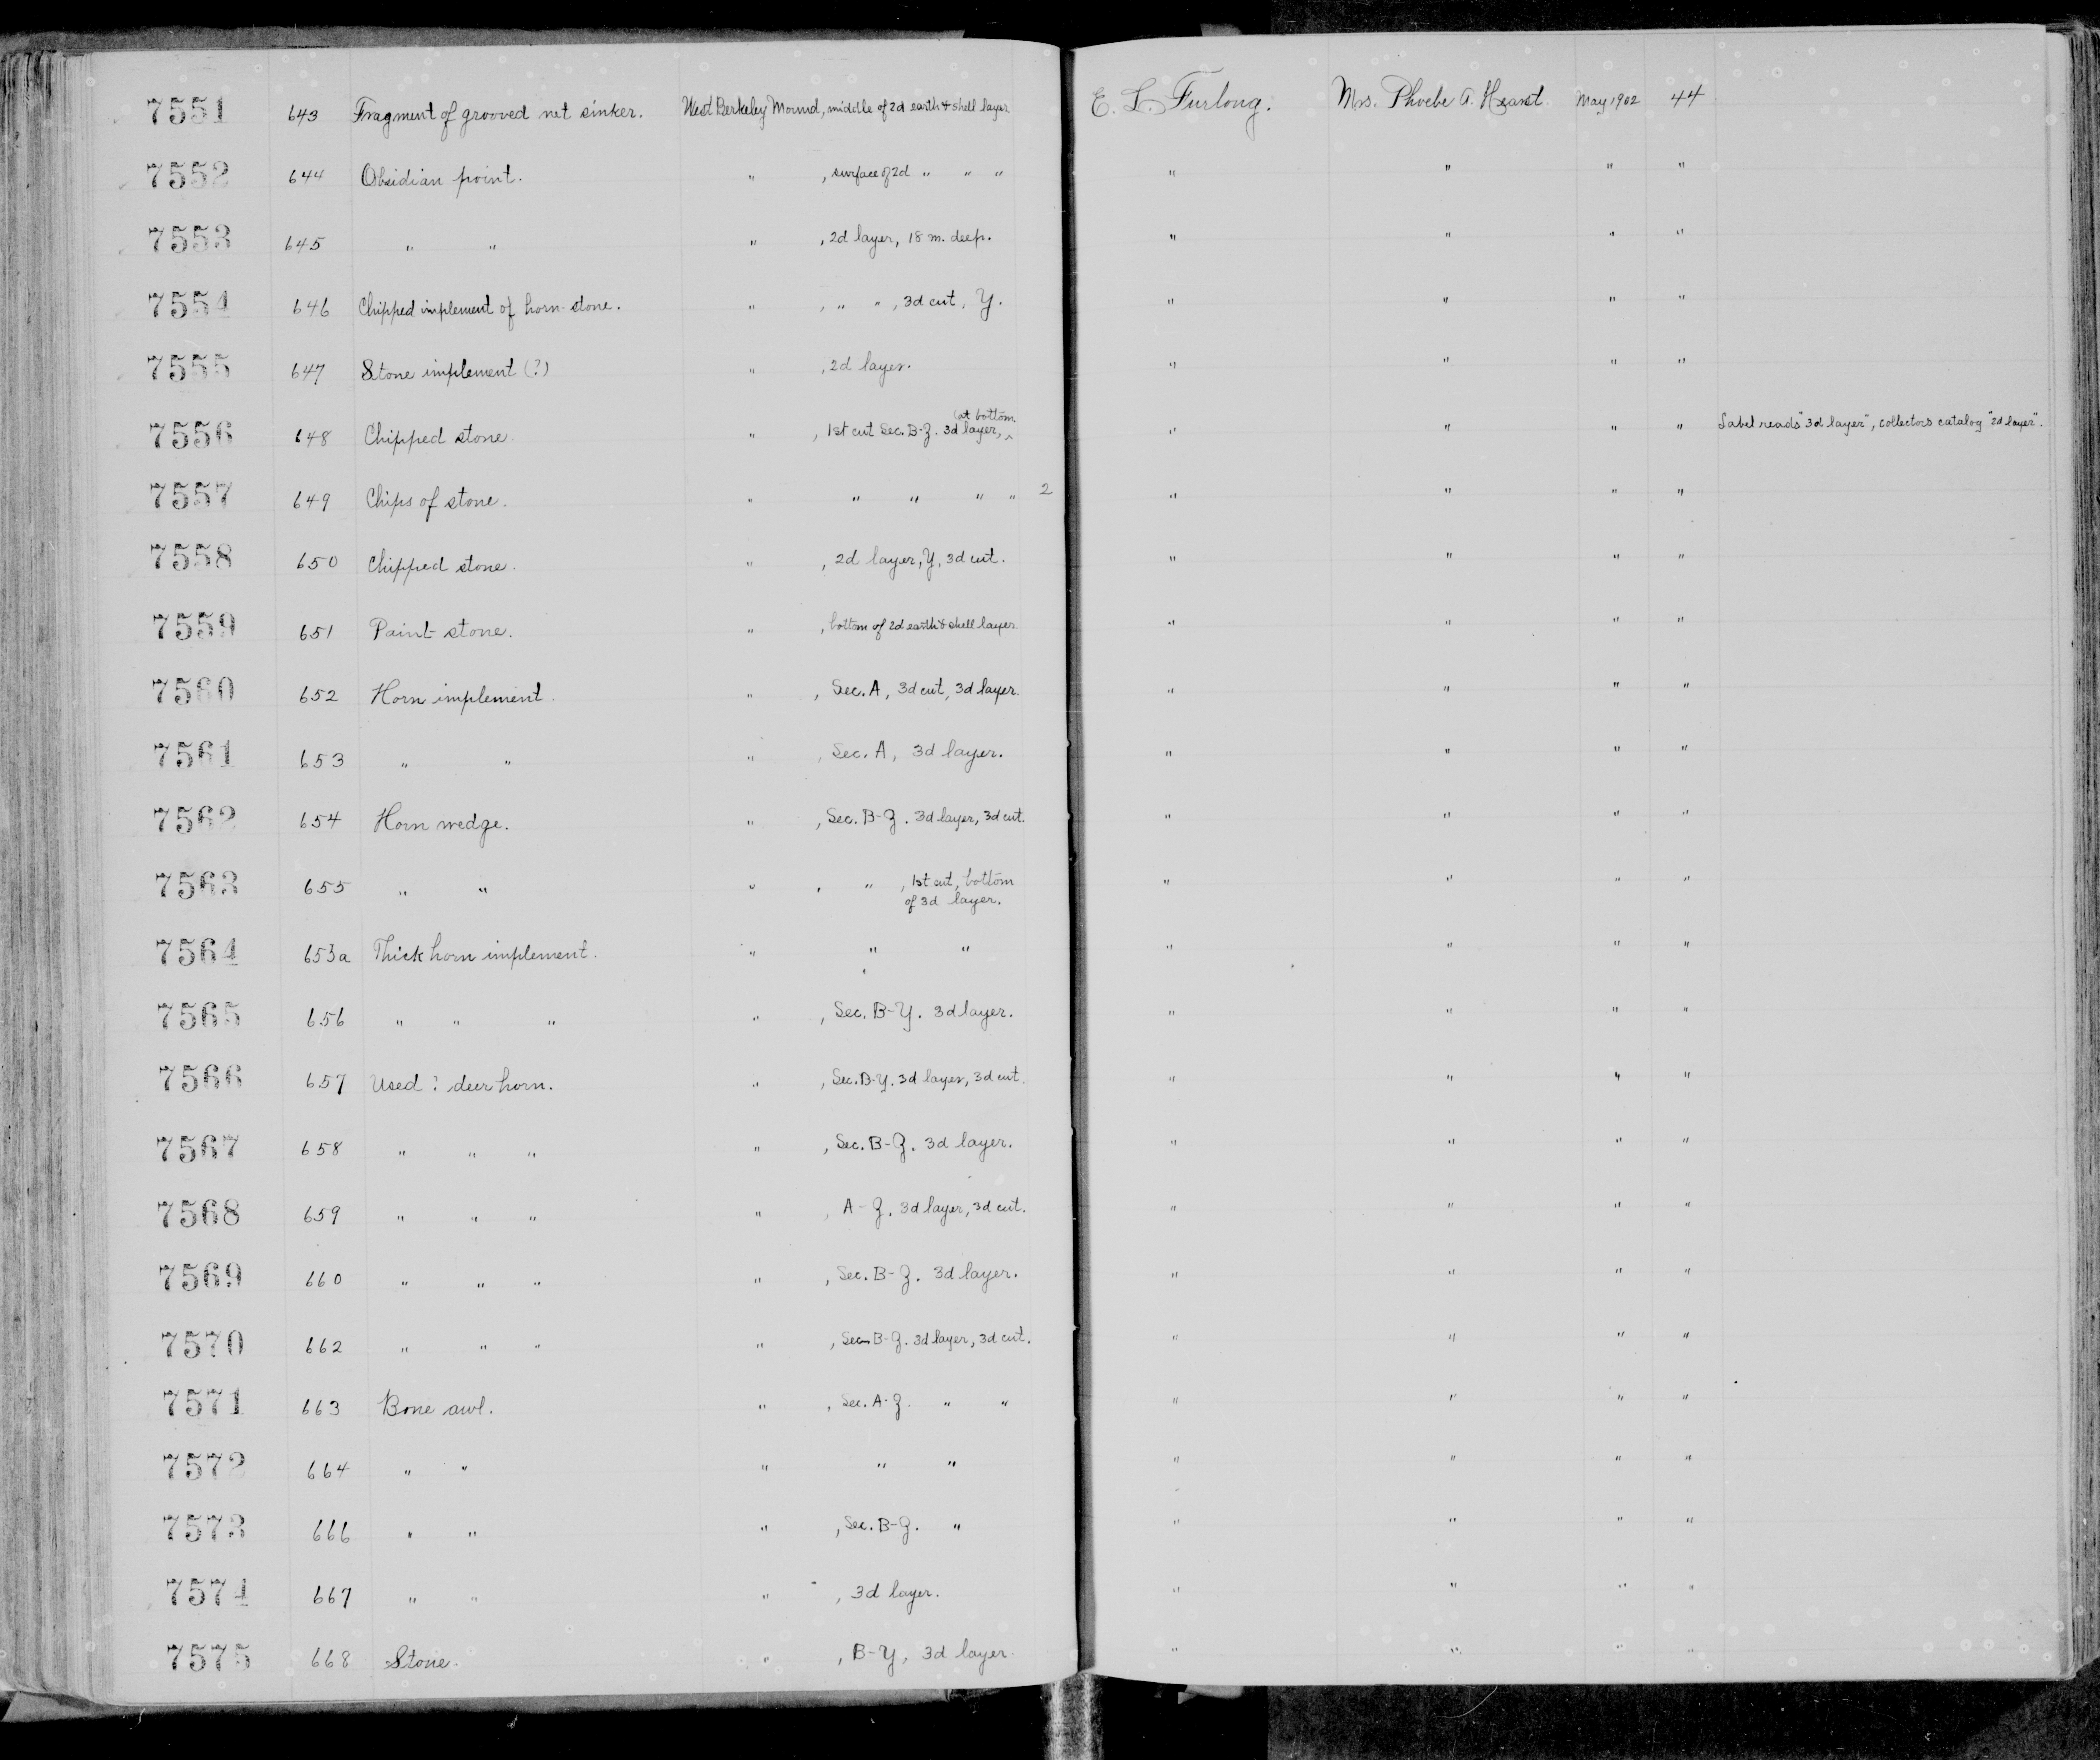 7551 643 Fragment of grooved net sinker. West Berkeley Mound, middle of 2d earth & shell layer. E. L. Furlong. Mrs. Phoebe A. Hearst. May 1902 44
7552 644 Obsidian point. " , surface of 2d " " " " " " "
7553 645 " " " , 2d layer, 18 m. deep. " " " "
7554 646 Chipped implement of horn-stone. " , " " , 3d cut, Y. " " " "
7555 647 Stone implement (?) " , 2d layer. " " " "
7556 648 Chipped stone. " , 1st cut Sec. B-Z. 3d layer, (at bottom " " " " Label reads "3d layer", collectors catalog "2d layer".
7557 649 Chips of stone. " " " " " 2 " " " "
7558 650 Chipped stone. " , 2d layer, Y, 3d cut. " " " "
7559 651 Paint stone. " , bottom of 2d earth & shell layer. " " " "
7560 652 Horn implement. " , Sec. A, 3d cut, 3d layer. " " " "
7561 653 " " " , Sec. A, 3d layer. " " " "
7562 654 Horn wedge. " , Sec. B-Z. 3d layer, 3d cut. " " " "
7563 655 " " " , " , 1st cut, bottom
of 3d layer. " " " "
7564 653a Thick horn implement. " " " " " " "
7565 656 " " " " , Sec. B-Y. 3d layer. " " " "
7566 657 Used ? deer horn. " , Sec. B-Y. 3d layer, 3d cut. " " " "
7567 658 " " " " , Sec. B-Z. 3d layer. " " " "
7568 659 " " " " , A-Z. 3d layer, 3d cut. " " " "
7569 660 " " " " , Sec. B-Z. 3d layer. " " " "
7570 662 " " " " , Sec. B-Z. 3d layer, 3d cut. " " " "
7571 663 Bone awl. " , Sec. A-Z. " " " " " "
7572 664 " " " " " " " " "
7573 666 " " " , Sec. B-Z. " " " " "
7574 667 " " " , 3d layer. " " " "
7575 668 Stone. " , B-Y, 3d layer. " " " "